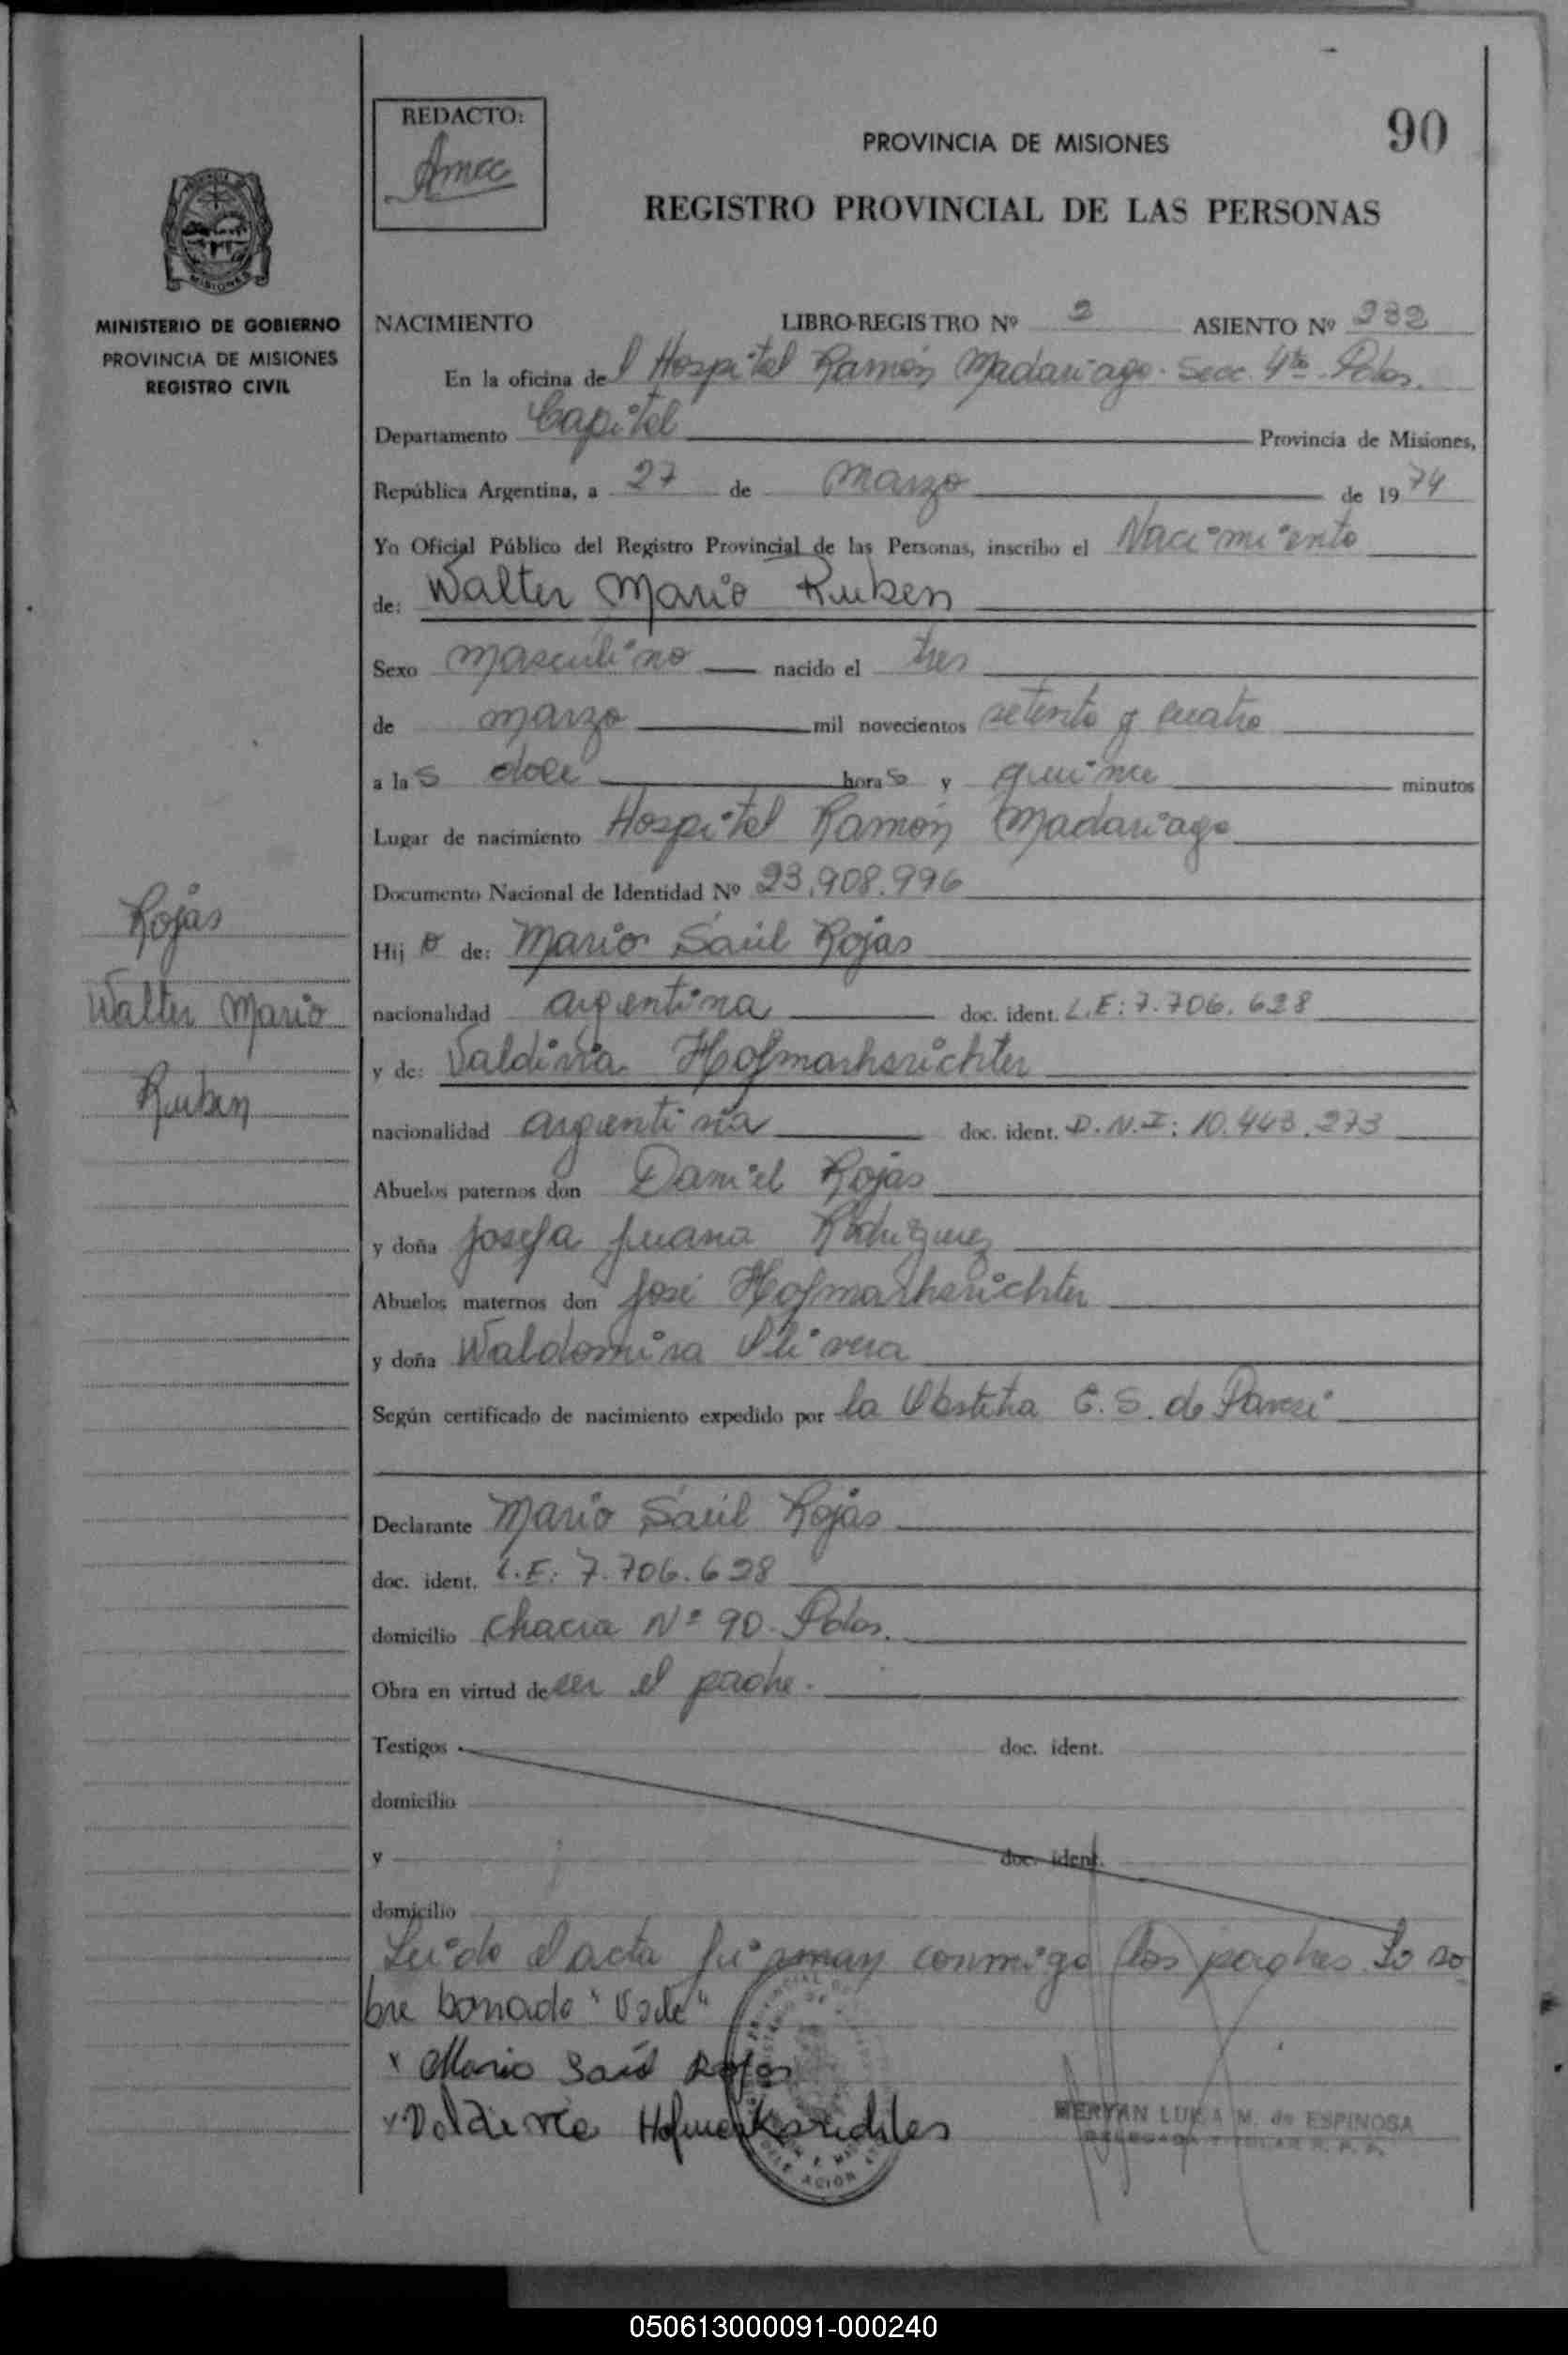 90
REDACTO:
PROVINCIA DE MISIONES
REGISTRO PROVINCIAL DE LAS PERSONAS
MISIONES
MINISTERIO DE GOBIERNO
PROVINCIA DE MISIONES
REGISTRO CIVIL
NACIMIENTO LIBRO-REGISTRO Nº 2 ASIENTO Nº 232
En la oficina del Hospital Ramón Madariaga. Secc. 4ta. Pdas.
Departamento Capital Provincia de Misiones,
República Argentina, a 27 de marzo de 1974
Yo Oficial Público del Registro Provincial de las Personas, inscribo el Nacimiento
de: Walter Mario Ruben
Sexo masculino nacido el tres
de marzo mil novecientos setenta y cuatro
a las doce horas y quince minutos
Lugar de nacimiento Hospital Ramón Madariaga
Documento Nacional de Identidad Nº 23.908.996
Rojas
Walter Mario
Ruben
Hijo de: Mario Saúl Rojas
nacionalidad argentina doc. ident. L.E: 7.706.628
y de: Valdivia Hofmarksrichter
nacionalidad argentina doc. ident. D.N.I: 10.443.273
Abuelos paternos don Daniel Rojas
y doña Josefa Juana Rodriguez
Abuelos maternos don José Hofmarksrichter
y doña Waldomira Olivera
Según certificado de nacimiento expedido por la Obstetra C. S. de Pavesi
Declarante Mario Saúl Rojas
doc. ident. L.E: 7.706.628
domicilio Chacra Nº 90. Pdas.
Obra en virtud de ser el padre.
Testigos doc. ident.
domicilio
y doc. ident.
domicilio
Leído el acta firman conmigo los padres. Lo so
bre borrado "Vale"
x Mario Saúl Rojas
x Valdivia Hofmarksrichter
M. de ESPINOSA
050613000091-000240